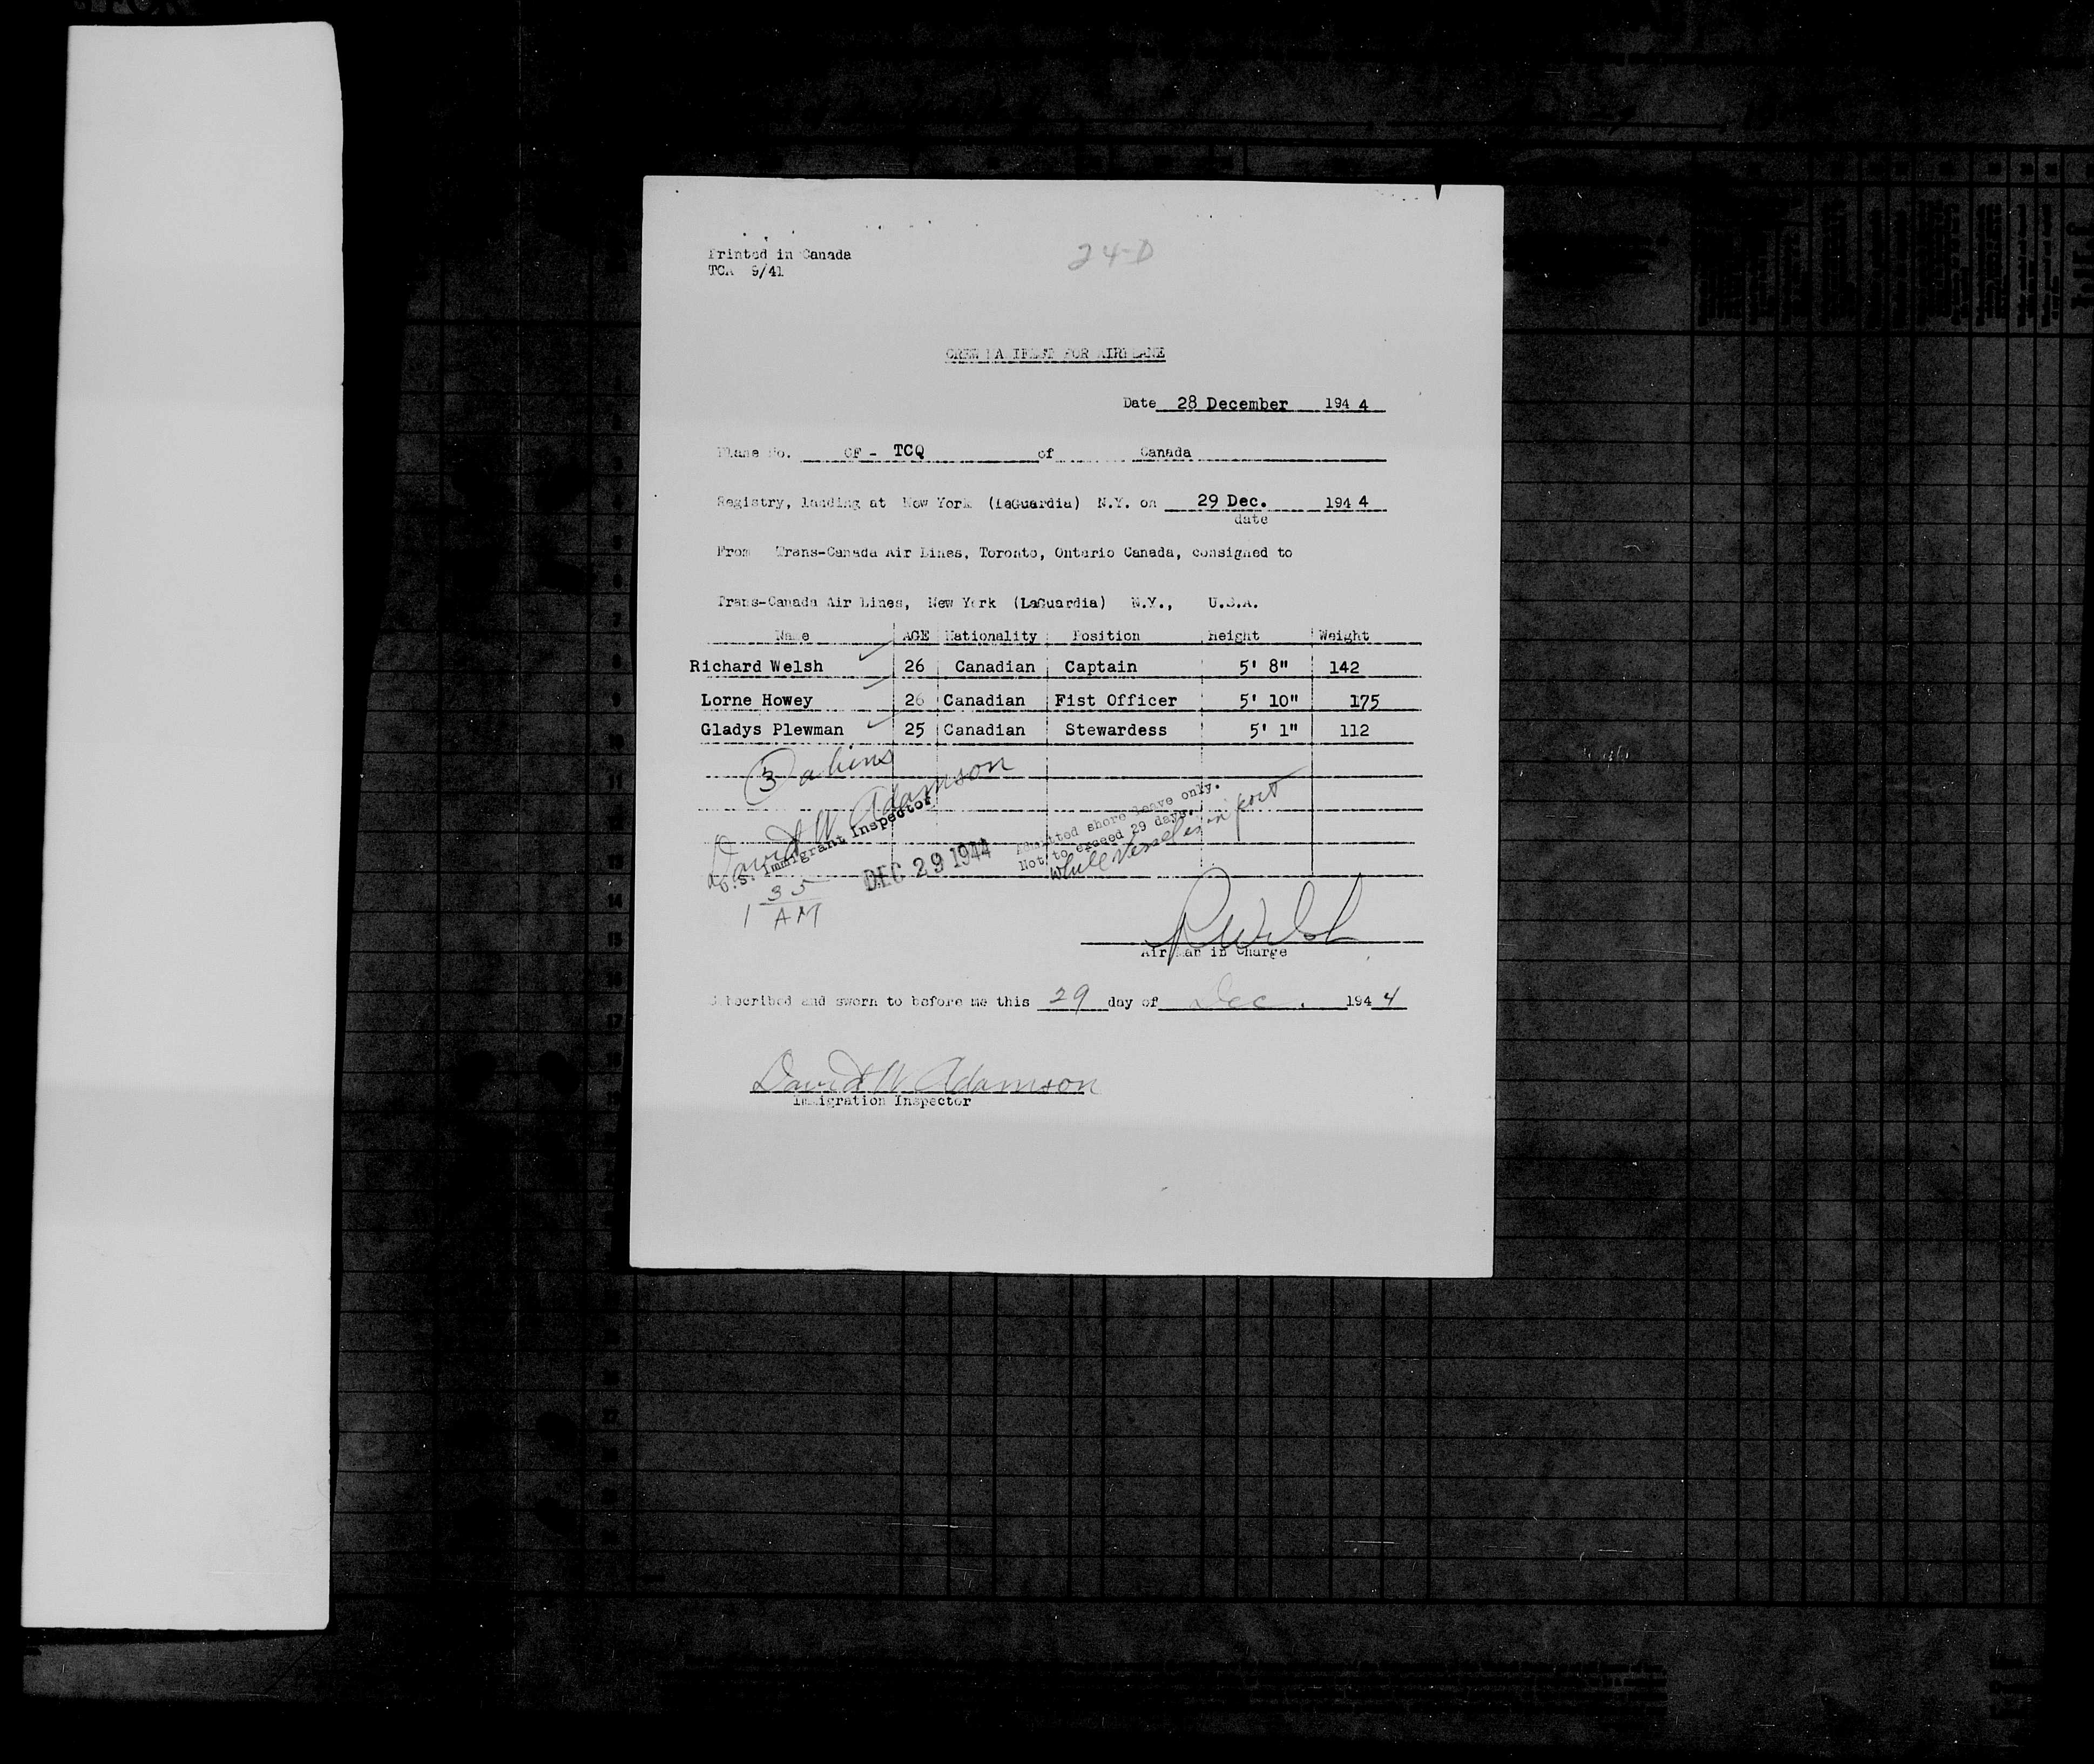 Printed in Canada
TCA 9/41
24-D
CREW MANIFEST FOR AIRPLANE
Date 28 December 194 4
Plane No. CF - TCQ of Canada
Registry, landing at New York (LaGuardia) N.Y. on 29 Dec. 194 4
date
From Trans-Canada Air Lines, Toronto, Ontario Canada, consigned to
Trans-Canada Air Lines, New York (LaGuardia) N.Y., U.S.A.
Name AGE Nationality Position Height Weight
Richard Welsh 26 Canadian Captain 5' 8" 142
Lorne Howey 26 Canadian Fist Officer 5' 10" 175
Gladys Plewman 25 Canadian Stewardess 5' 1" 112
3 aliens
David W Adamson
U.S. Immigrant Inspector
1 35 AM
DEC 29 1944
Admitted shore leave only.
Not to exceed 29 days.
while vessel is in port
R Welsh
Air Man in Charge
Subscribed and sworn to before me this 29 day of Dec. 194 4
David W Adamson
Immigration Inspector